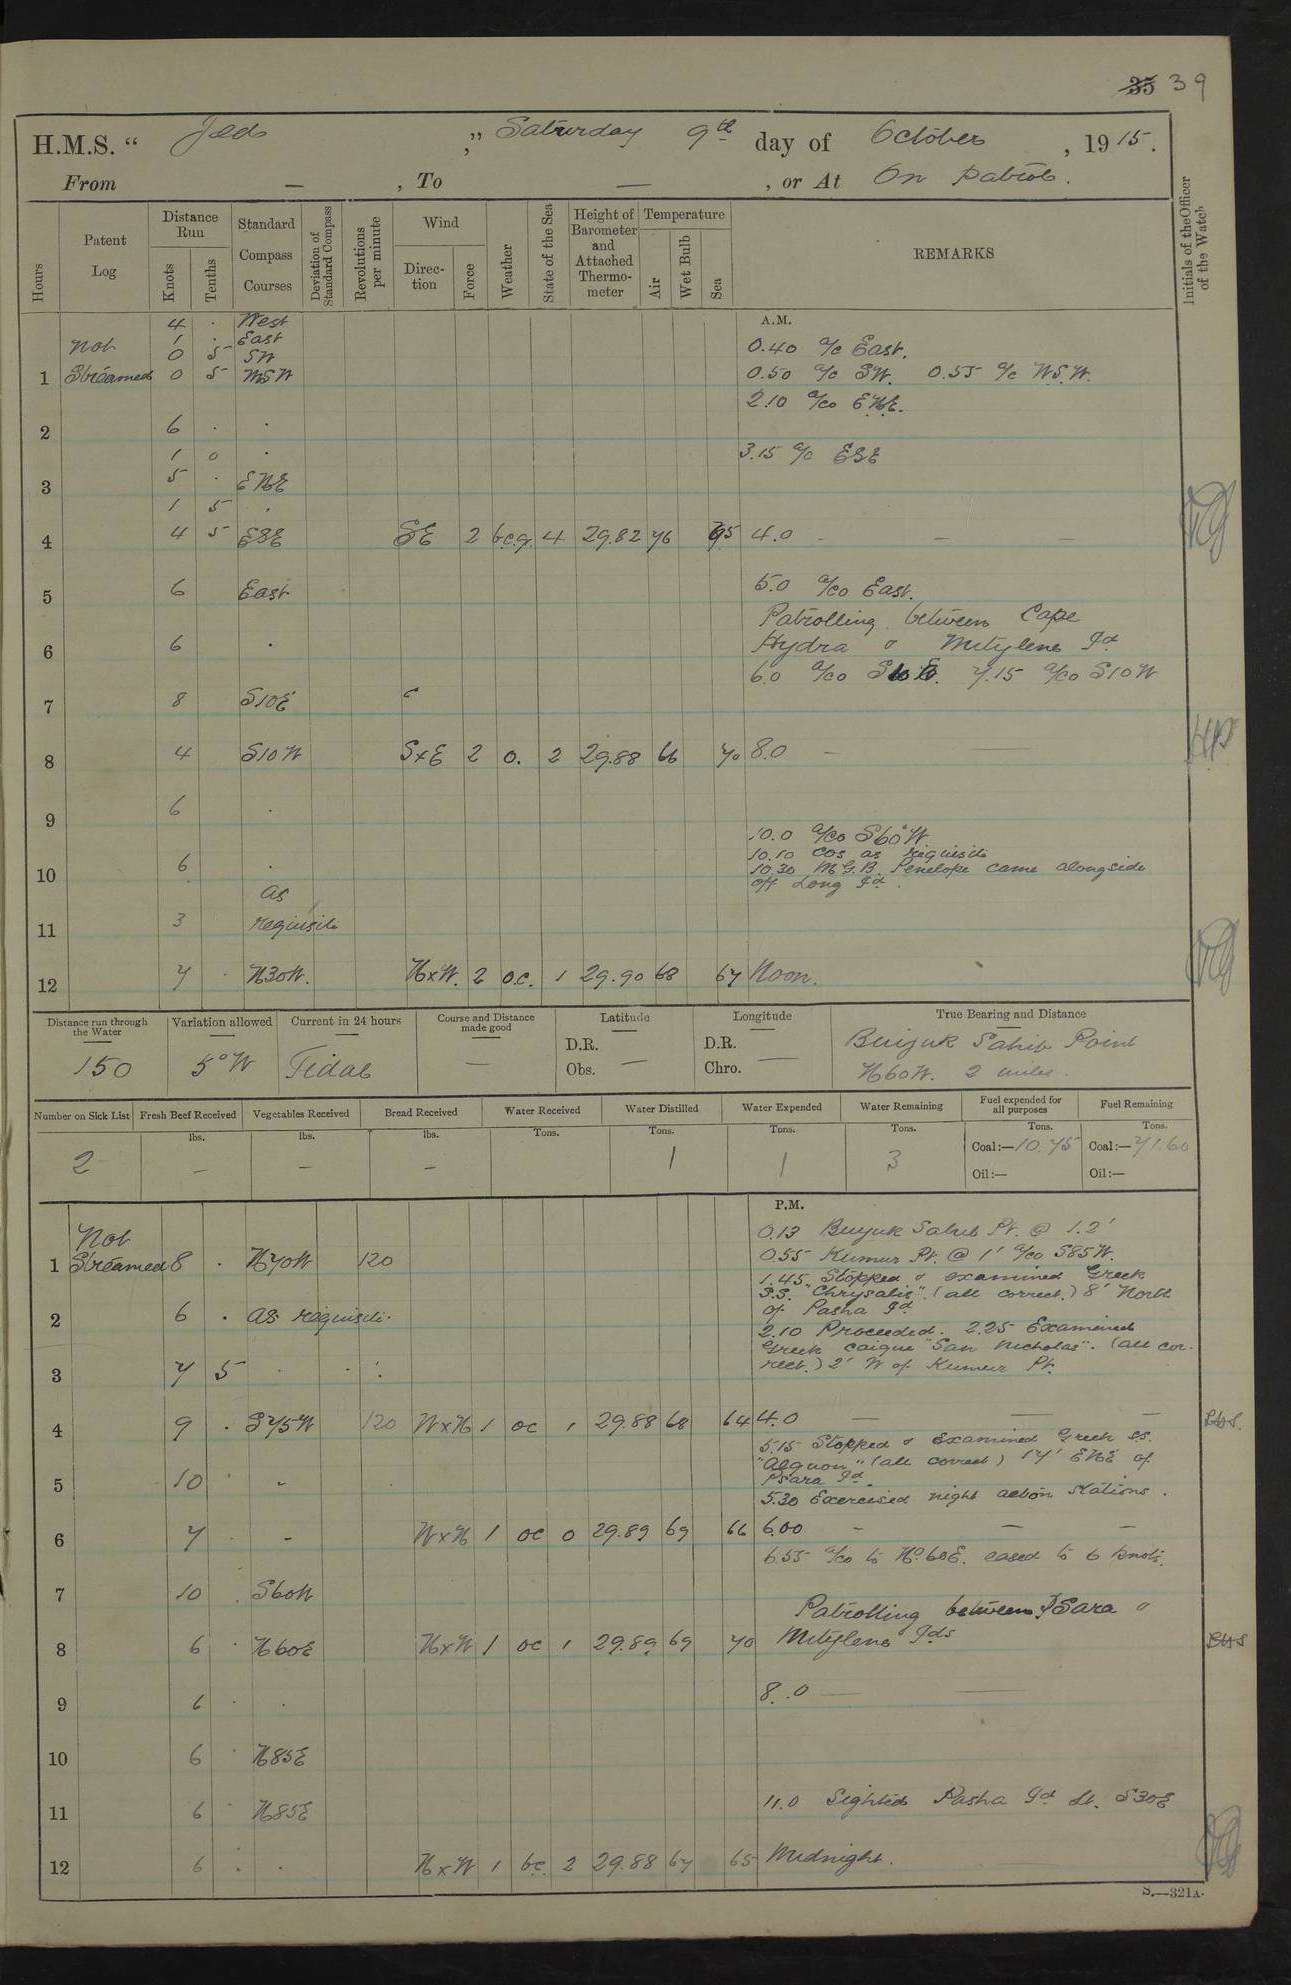 35 39
H.M.S. “ Jed ,” Saturday 9th day of October , 1915.
From — , To — , or At On Patrol.
Hours
Patent Log
Distance Run
Knots
Tenths
Standard Compass Courses
Deviation of Standard Compass
Revolutions per minute
Wind
Direction
Force
Weather
State of the Sea
Height of Barometer and Attached Thermometer
Temperature
Air
Wet Bulb
Sea
REMARKS
Initials of the Officer of the Watch
4 . West A.M.
1 . East
Not 0 5 SW 0.40 a/c East.
1 Streamed 0 5 WSW 0.50 a/c SW. 0.55 a/c W.S.W.
2.10 a/co ENE.
2 6 . .
1 0 . 3.15 a/c ESE
3 5 . ENE
1 5 .
4 4 5 ESE SE 2 b.c.q. 4 29.82 76 75 4.0 — — —
5 6 East 5.0 a/co East.
Patrolling between Cape
6 6 . Hydra & Mitylene Id
6.0 a/co S10E. 7.15 a/co S10W
7 8 S10E
8 4 S10W SxE 2 o. 2 29.88 66 70 8.0 —
9 6 .
10.0 a/co S60°W
10.10 Cos as requisite
10 6 . 10.30 M.G.B. Penelope came alongside
off Long Id.
as
11 3 requisite
12 7 . N30W. NxW. 2 o.c. 1 29.90 68 67 Noon.
Distance run through the Water
150
Variation allowed
5°W
Current in 24 hours
Tidal
Course and Distance made good
—
Latitude
D.R.
Obs. —
Longitude
D.R.
Chro. —
True Bearing and Distance
Buijuk Sahib Point
N60W. 2 miles.
Number on Sick List
2
Fresh Beef Received
lbs.
—
Vegetables Received
lbs.
—
Bread Received
lbs.
—
Water Received
Tons.
Water Distilled
Tons.
1
Water Expended
Tons.
1
Water Remaining
Tons.
3
Fuel expended for all purposes
Tons.
Coal:—10.75
Oil:—
Fuel Remaining
Tons.
Coal:—71.60
Oil:—
P.M.
Not 0.13 Buyuk Sahib Pt. @ 1.2'
1 Streamed 8 . N70W 120 0.55 Kumur Pt. @ 1' a/co S85W.
1.45 Stopped & examined Greek
S.S. "Chrysalis". (all correct.) 8' North
2 6 . as requisite. of Pasha Id
2.10 Proceeded. 2.25 Examined
Greek caique "San Nicholas". (all cor-
3 7 5 . . : rect.) 2' W of Kumur Pt.
4 9 . S75W 120 WxN 1 oc 1 29.88 68 64 4.0 — — —
5.15 Stopped & Examined Greek S.S.
"Aegnon" (all correct) 17' ENE of
5 10 . - Psara Id.
5.30 Exercised night action stations.
6 7 . - WxN 1 oc 0 29.89 69 66 6.00 — — —
6.55 a/co to No.60E. eased to 6 knots.
7 10 . S60W
Patrolling between Psara &
8 6 . N60E NxW 1 oc 1 29.89 69 70 Mitylene Ids
9 6 . . 8.0 — —
10 6 . N85E
11 6 . N85E 11.0 Sighted Pasha Id Lt. S30E
12 6 : . NxW 1 bc. 2 29.88 67 65 Midnight.
S.—321A.